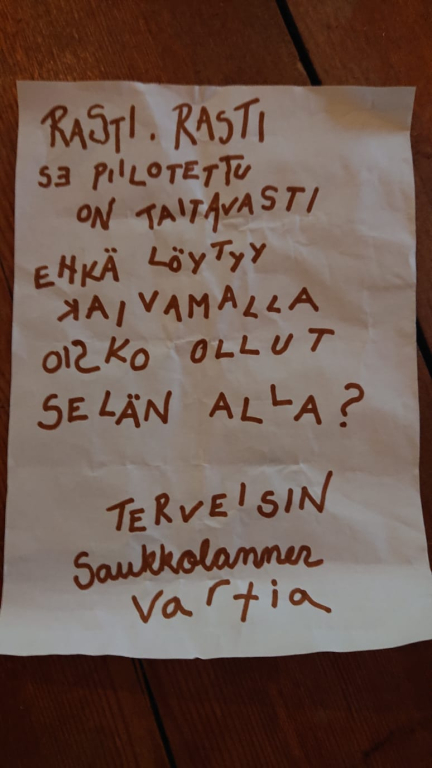 RASTI. RASTI
SE PIILOTETTU
ON TAITAVASTI
EHKÄ LÖYTYY
KAIVAMALLA
OISKO OLLUT
SELÄN ALLA?
TERVEISIN
Saukkolanner
vartia